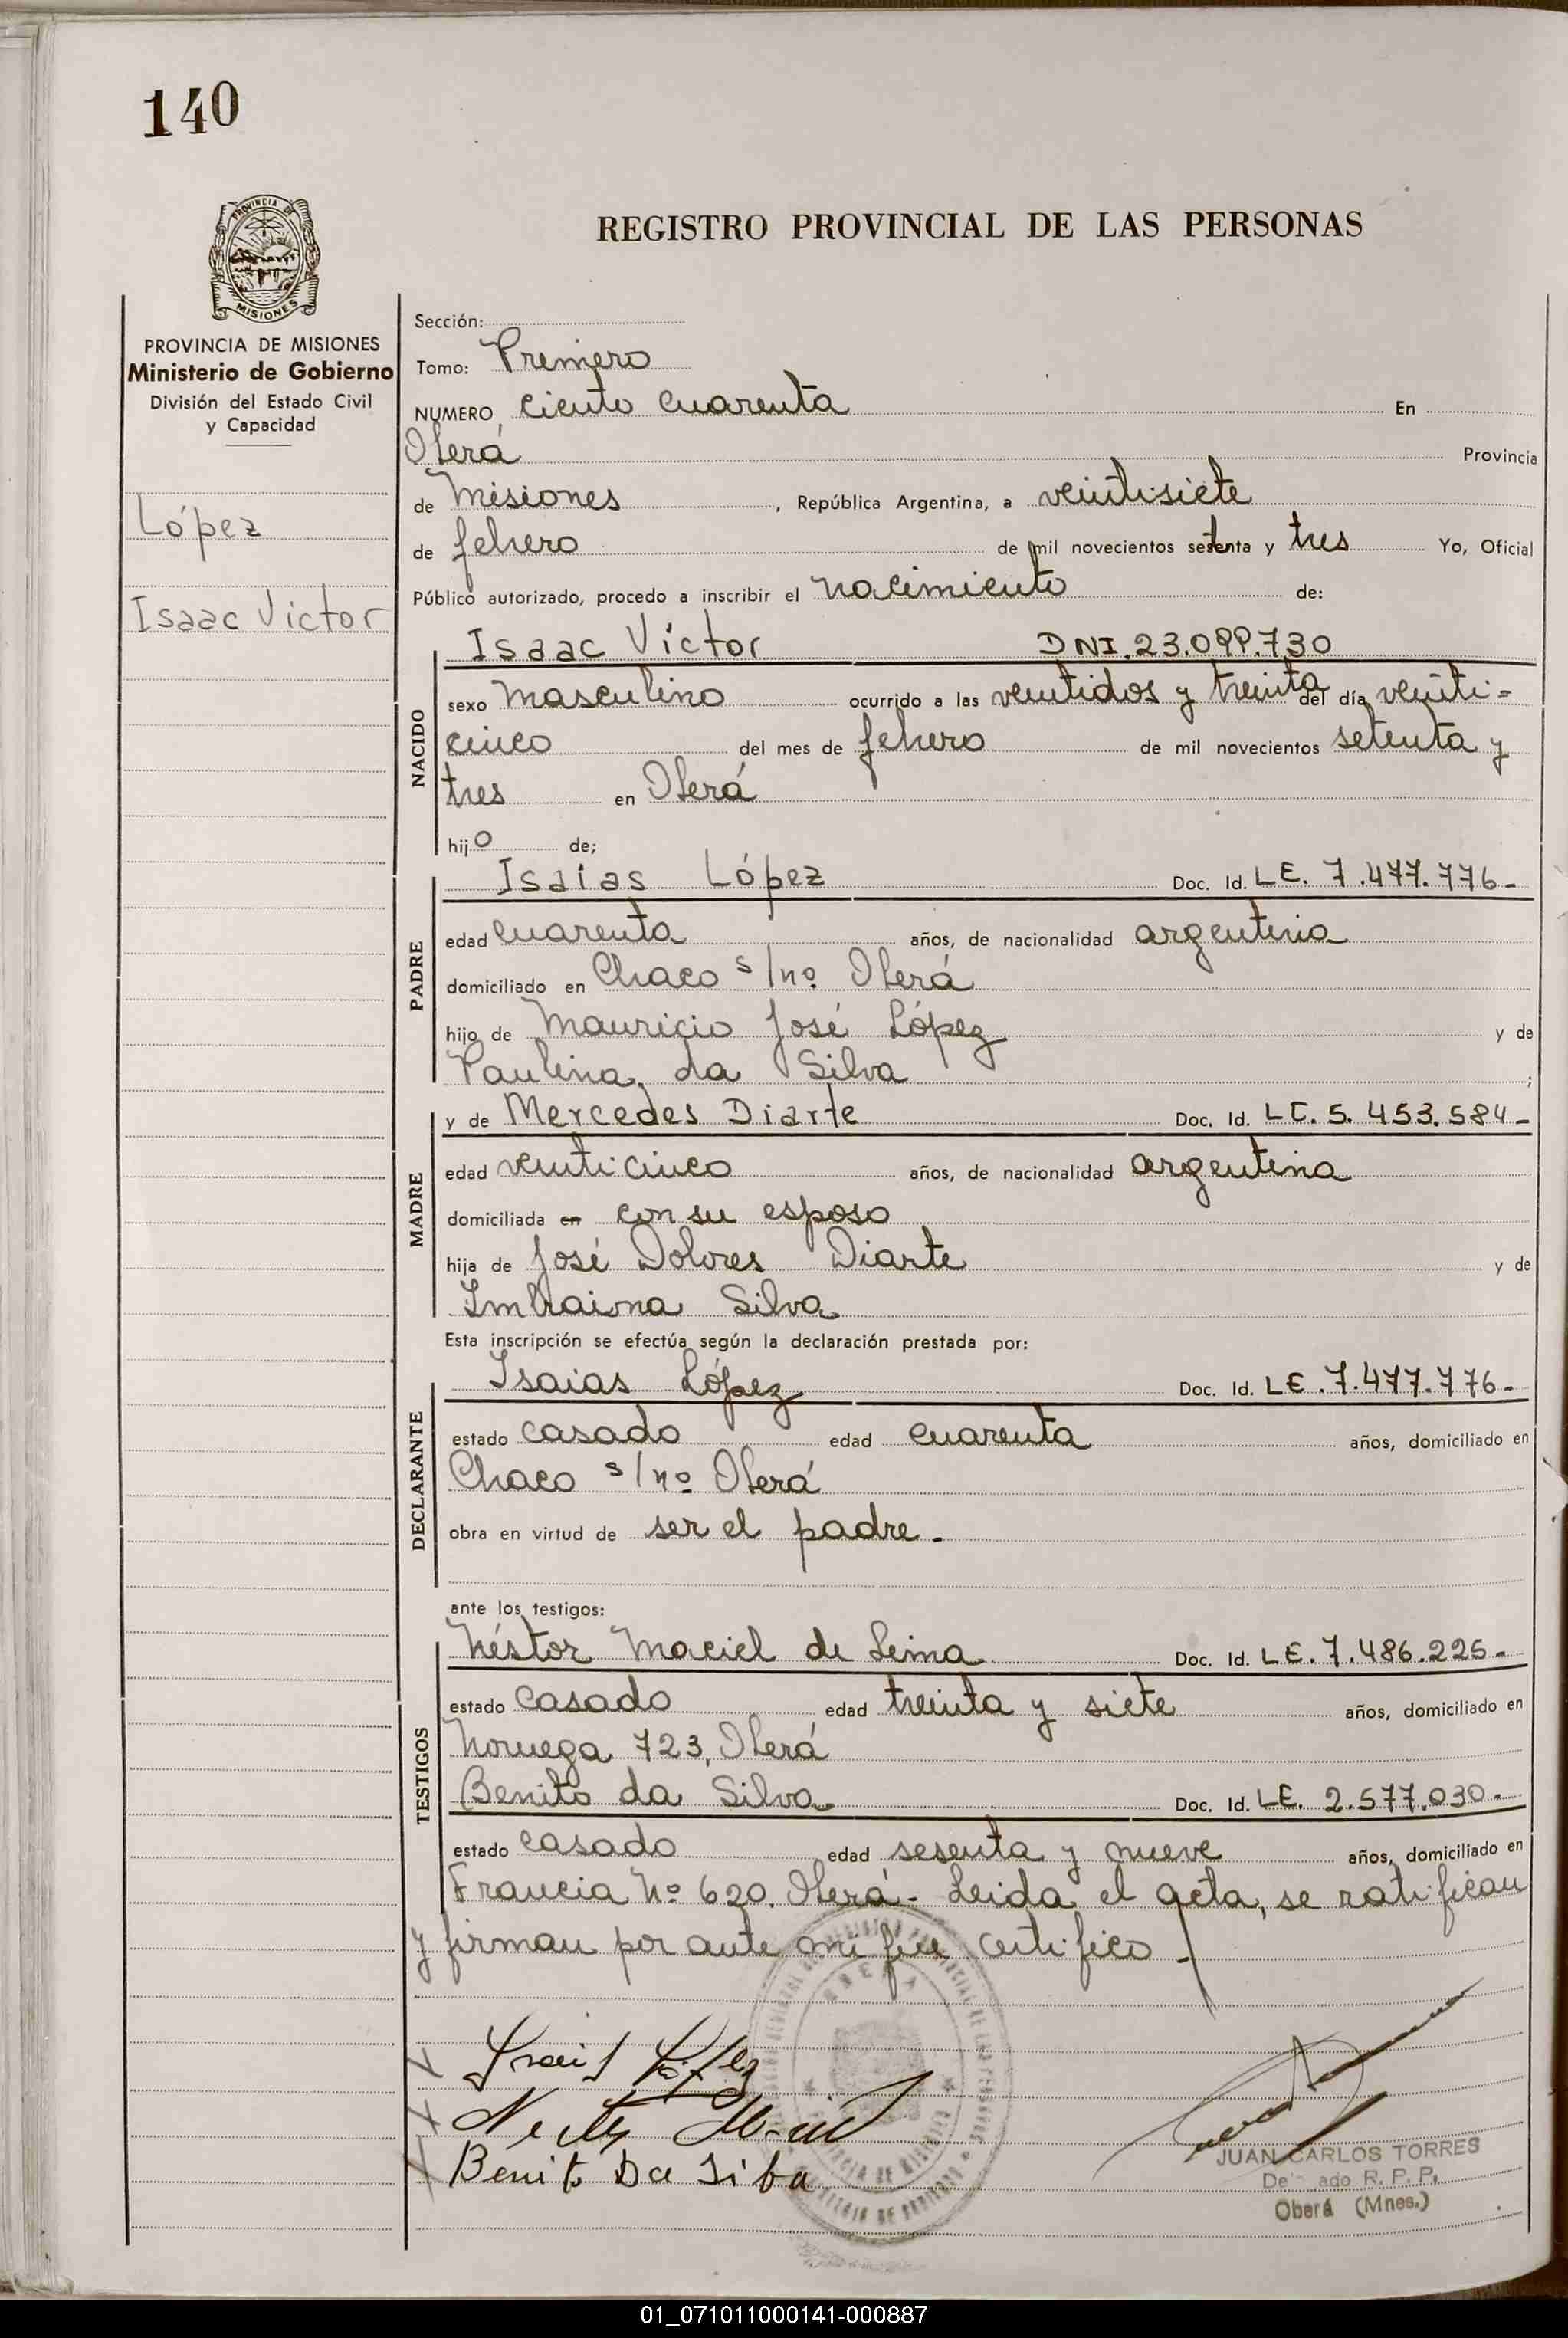 140
PROVINCIA DE
MISIONES
REGISTRO PROVINCIAL DE LAS PERSONAS
PROVINCIA DE MISIONES
Ministerio de Gobierno
División del Estado Civil
y Capacidad
López
Isaac Victor
Sección:
Tomo: Primero
NUMERO ciento cuarenta En
Oberá Provincia
de Misiones, República Argentina, a veintisiete
de febrero de mil novecientos setenta y tres Yo, Oficial
Público autorizado, procedo a inscribir el nacimiento de:
Isaac Victor DNI.23.099.730
NACIDO
sexo masculino ocurrido a las veintidos y treinta del día veinti=
cinco del mes de febrero de mil novecientos setenta y
tres en Oberá
hijo de;
Isaias López Doc. Id. LE. 7.477.776-
PADRE
edad cuarenta años, de nacionalidad argentina
domiciliado en Chaco s/nº Oberá
hijo de Mauricio José López y de
Paulina da Silva ;
y de Mercedes Diarte Doc. Id. LC. 5.453.584-
MADRE
edad veinticinco años, de nacionalidad argentina
domiciliada en con su esposo
hija de José Dolores Diarte y de
Silva
Esta inscripción se efectúa según la declaración prestada por:
Isaias López Doc. Id. LE. 7.477.776-
DECLARANTE
estado casado edad cuarenta años, domiciliado en
Chaco s/nº Oberá
obra en virtud de ser el padre.
ante los testigos:
Néstor Maciel de Lima Doc. Id. LE. 7.486.225-
TESTIGOS
estado casado edad treinta y siete años, domiciliado en
Noruega 723, Oberá
Benito da Silva Doc. Id. LE. 2.577.030-
estado casado edad sesenta y nueve años, domiciliado en
Francia Nº 620. Oberá- Leida el acta, se ratifican
y firman por ante mi que certifico.
OBERA
Isais López
Benito Da Silba
JUAN CARLOS TORRES
R. P. P.
Oberá (Mnes.)
01_071011000141-000887